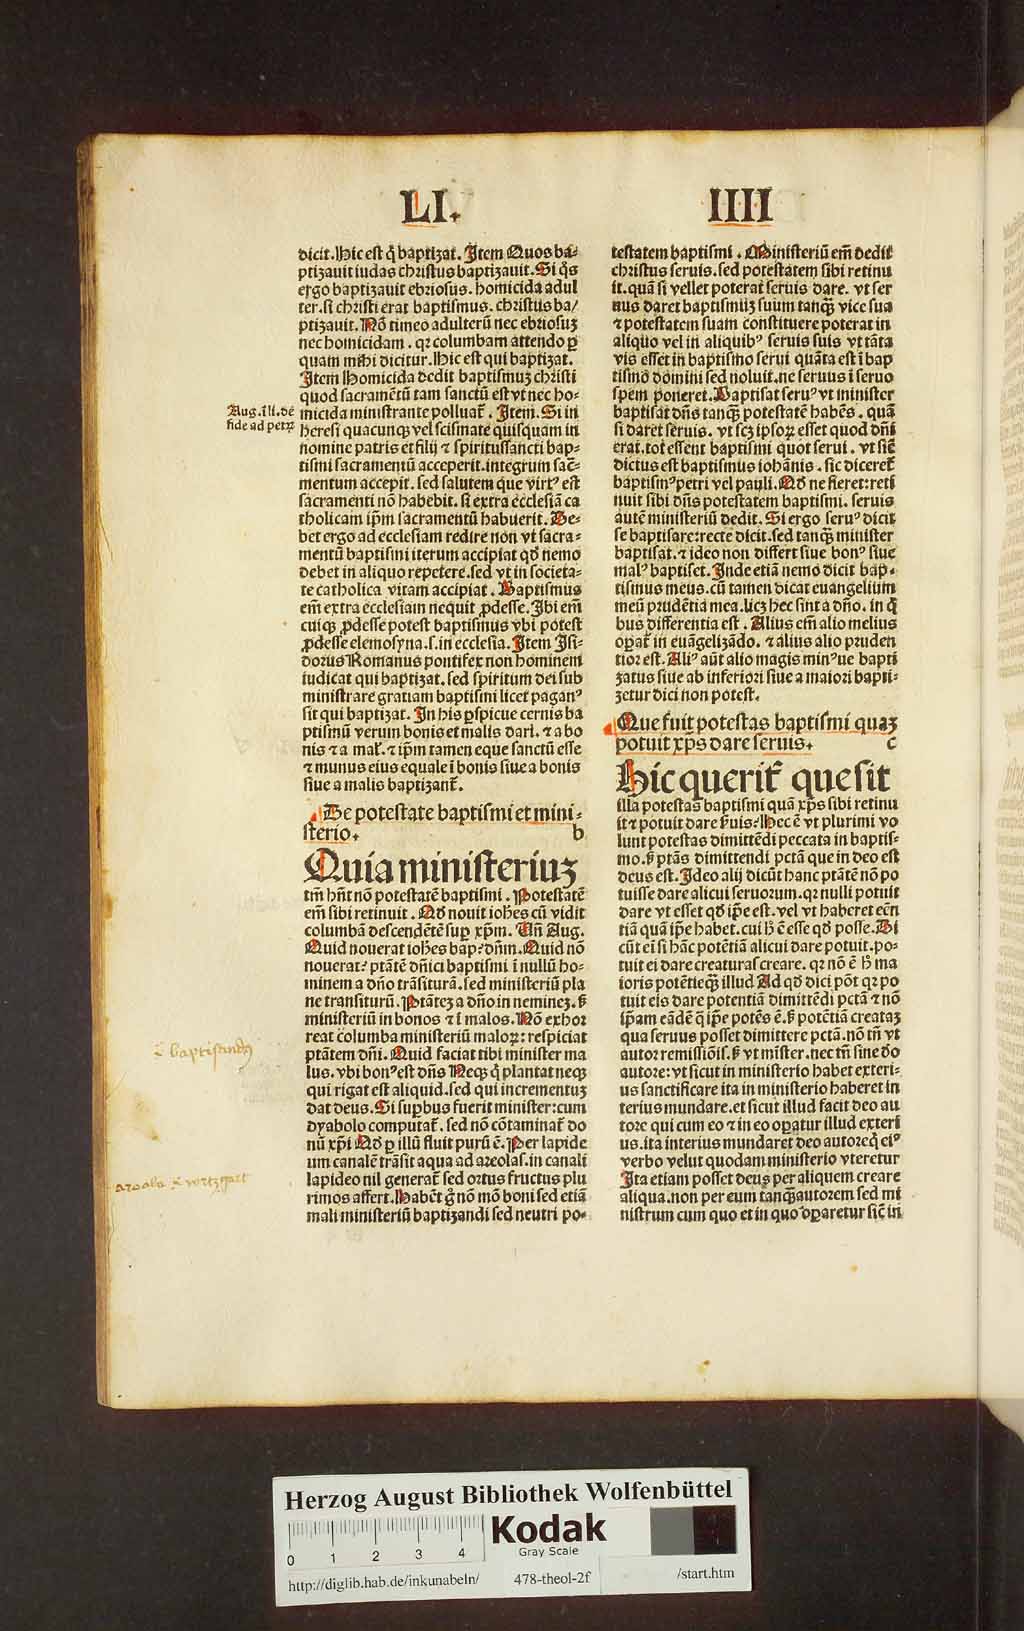 LI. IIII
dicit. Hic est q̇ baptizat. Item Quos ba⸗
ptizauit iudas christus baptizauit. Si q̇s
ergo baptizauit ebriosus. homicida adul
ter. si christi erat baptismus. christus ba/
ptizauit. Nō timeo adulterū nec ebriosuꝫ
nec homicidam. qꝛ columbam attendo ꝑ
quam mihi dicitur. Hic est qui baptizat.
Item Homicida dedit baptismuꝫ christi
quod sacramētū tam sanctū est vt nec ho⸗
Aug. ī li. de
fide ad petꝝ
micida ministrante polluat̄. Item. Si in
heresi quacunqꝫ vel scismate quisquam in
nomine patris et filij ⁊ spiritussancti bap⸗
tismi sacramentū acceperit. integrum sac̄⸗
mentum accepit. sed salutem que virtꝰ est
sacramenti nō habebit. si extra ecclesiā ca
tholicam ip̄m sacramentū habuerit. De⸗
bet ergo ad ecclesiam redire non vt sacra⸗
mentū baptismi iterum accipiat qđ nemo
debet in aliquo repetere. sed vt in societa⸗
te catholica vitam accipiat. Baptismus
em̄ extra ecclesiam nequit ꝓdesse. Ibi em̄
cuiqꝫ ꝓdesse potest baptismus vbi potest
ꝓdesse elemosyna. s. in ecclesia. Item Isi⸗
dorus Romanus pontifex non hominem
iudicat qui baptizat. sed spiritum dei sub
ministrare gratiam baptismi licet paganꝰ
sit qui baptizat. In his ꝑspicue cernis ba
ptismū verum bonis et malis dari. ⁊ a bo
nis ⁊ a mal̄. ⁊ ip̄m tamen eque sanctū esse
⁊ munus eius equale ī bonis siue a bonis
siue a malis baptizant̄.
De potestate baptismi et mini⸗
sterio. b
Quia ministeriuꝫ
tm̄ hn̄t nō potestatē baptismi. Potestatē
em̄ sibi retinuit. Qđ nouit ioh̄es cū vidit
columbā descendētē suꝑ xp̄m. Un̄ Aug.
Quid nouerat ioh̄es bap: dn̄m. Quid nō
nouerat: ptātē dn̄ici baptismi ī nullū ho⸗
minem a dn̄o trāsiturā. sed ministeriū pla
ne transiturū. Ptātez a dn̄o in neminez. sꝫ
ministeriū in bonos ⁊ ī malos. Nō exhor
reat columba ministeriū maloꝝ: respiciat
ptātem dn̄i. Quid faciat tibi minister ma
lus. vbi bonꝰ est dn̄s Neqꝫ q̇ plantat neqꝫ
qui rigat est aliquid. sed qui incrementuꝫ
dat deus. Si suꝑbus fuerit minister: cum
dyabolo computat̄. sed nō cōtaminat̄ do
nū xp̄i Qđ ꝑ illū fluit purū ē. Per lapide
um canalē trāsit aqua ad areolas. in canali
lapideo nil generat̄ sed ortus fructus plu
rimos affert. Habēt g̊ nō mō boni sed etiā
mali ministeriū baptizandi sed neutri po⸗
baptisandi
testatem baptismi. Ministeriū em̄ dedit
christus seruis. sed potestatem sibi retinu
it. quā si vellet poterat seruis dare. vt ser
uus daret baptismūꝫ suum tanqꝫ vice sua
⁊ potestatem suam constituere poterat in
aliquo vel in aliquibꝰ seruis suis vt tāta
vis esset in baptismo serui quāta est ī bap
tismo domini sed noluit. ne seruus ī seruo
spem poneret. Baptisat seruꝰ vt minister
baptisat dn̄s tanqꝫ potestatē habēs. quā
si daret seruis. vt scꝫ ipsoꝝ esset quod dn̄i
erat. tot essent baptismi quot serui. vt sic̄
dictus est baptismus iohānis. sic diceret̄
baptismꝰ petri vel pauli. Qđ ne fieret: reti
nuit sibi dn̄s potestatem baptismi. seruis
autē ministeriū dedit. Si ergo seruꝰ dicit
se baptisare: recte dicit. sed tanqꝫ minister
baptisat. ⁊ ideo non differt siue bonꝰ siue
malꝰ baptiset. Inde etiā nemo dicit bap⸗
tismus meus. cū tamen dicat euangelium
meū prudētia mea. licꝫ hec sint a dn̄o. in q̇
bus differentia est. Alius em̄ alio melius
oꝑat̄ in euāgelizādo. ⁊ alius alio pruden
tior est. Aliꝰ aūt alio magis minꝰue bapti
zatus siue ab inferiori siue a maiori bapti⸗
zetur dici non potest.
Que fuit potestas baptismi quaꝫ
potuit xp̄s dare seruis. c
Hic querit̄ que sit
illa potestas baptismi quā xp̄s sibi retinu
it ⁊ potuit dare ẜuis: Hec ē vt plurimi vo
lunt potestas dimittēdi peccata in baptis⸗
mo. sꝫ ptās dimittendi pctā que in deo est
deus est. Ideo alij dicūt hanc ptātē nō po
tuisse dare alicui seruorum. qꝛ nulli potuit
dare vt esset qđ ip̄e est. vel vt haberet eēn
tiā quā ip̄e habet. cui h̄ ē esse qđ posse. Di
cūt ei si hāc potētiā alicui dare potuit. po⸗
tuit ei dare creaturas creare. qꝛ nō ē h̄ ma
ioris potētieqꝫ illud Ad qđ dici pōt qꝛ po
tuit eis dare potentiā dimittēdi pctā ⁊ nō
ip̄am eādē q̇ ip̄e potēs ē. sꝫ potētiā creataꝫ
qua seruus posset dimittere pctā. nō tn̄ vt
autor remissiōis. sꝫ vt mister. nec tn̄ sine do
autore: vt sicut in ministerio habet exteri⸗
us sanctificare ita in ministerio haberet in
terius mundare. et sicut illud facit deo au
tore qui cum eo ⁊ in eo oꝑatur illud exteri
us. ita interius mundaret deo autoreq̇ eiꝰ
verbo velut quodam ministerio vteretur
Ita etiam posset deus per aliquem creare
aliqua. non per eum tanqꝫautorem sed mi
nistrum cum quo et in quo oꝑaretur sic̄ in
Herzog August Bibliothek Wolfenbüttel
Kodak
Gray Scale
0 1 2 3 4
http://diglib.hab.de/inkunabeln/ 478-theol-2f /start.htm